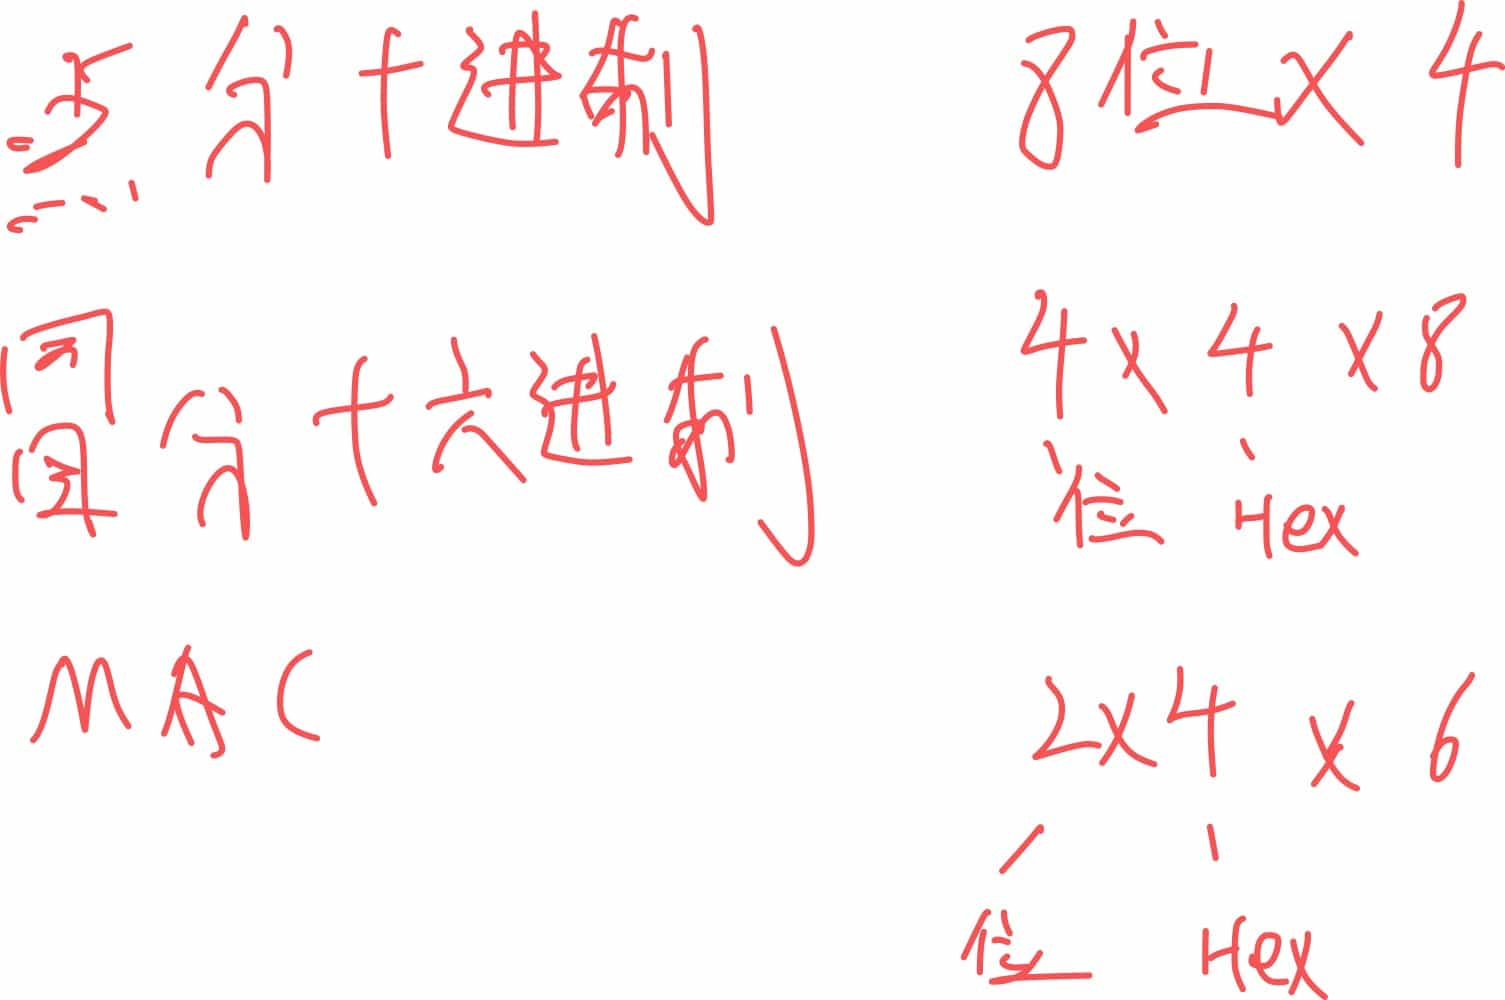 点分十进制 8位 × 4
冒分十六进制 4 × 4 × 8
位 Hex
MAC 2 × 4 × 6
位 Hex